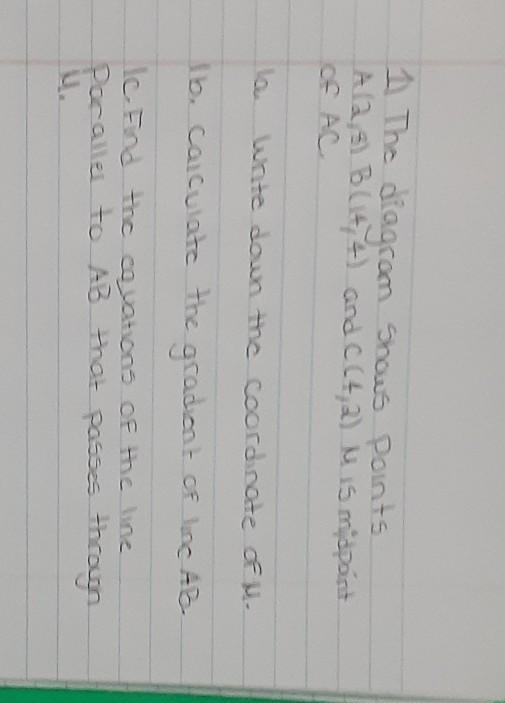 1) The diagram shows points
A(2,8) B(14,4) and C(4,2) M is midpoint
of AC
1a. Write down the coordinate of M.
1b. Calculate the gradient of line AB.
1c. Find the equations of the line
Parallel to AB that passes through
M.